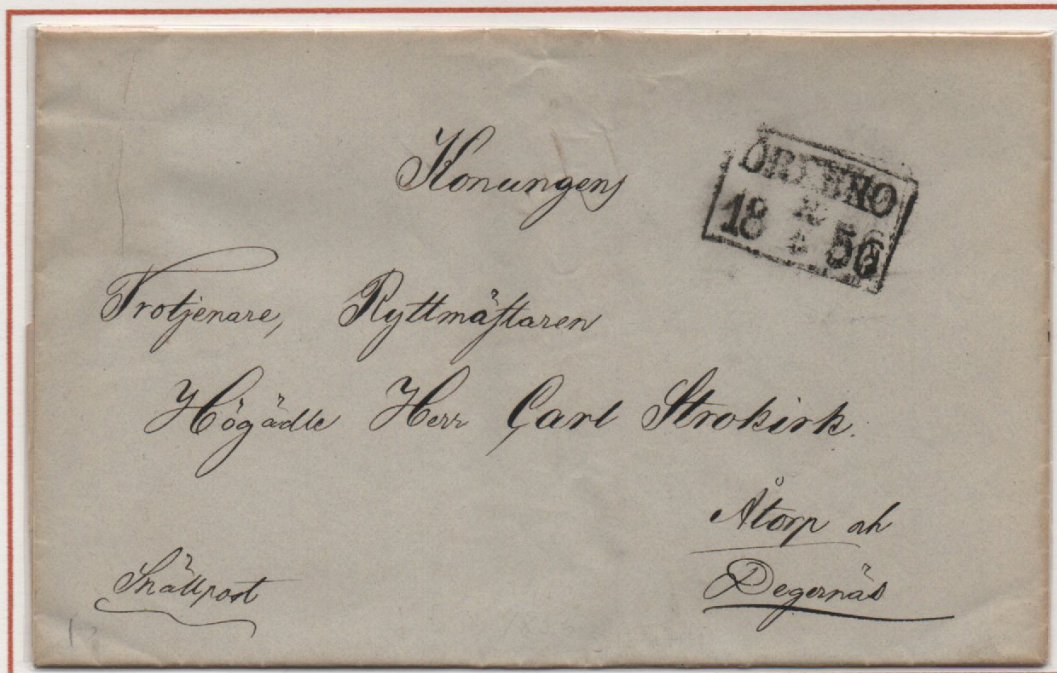 Konungens
ÖREBRO
18 56
Trotjenare, Ryttmästaren
Högädle Herr Carl Strokirk.
Åtorp och
Degernäs
Snällpost